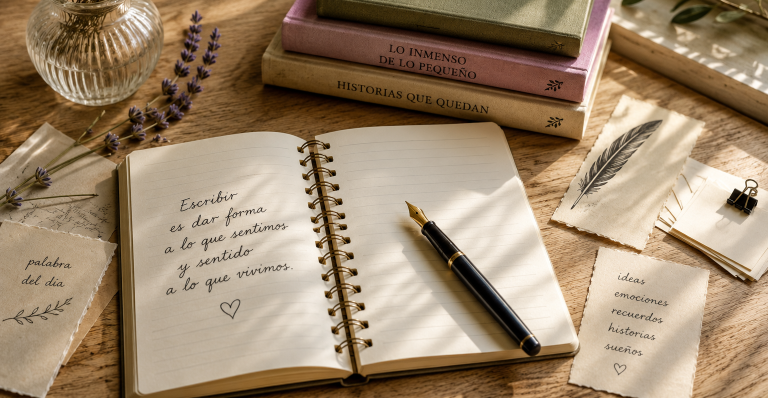 LO INMENSO
DE LO PEQUEÑO
HISTORIAS QUE QUEDAN
Escribir
es dar forma
a lo que sentimos
y sentido
a lo que vivimos.
palabra
del día
ideas
emociones
recuerdos
historias
sueños